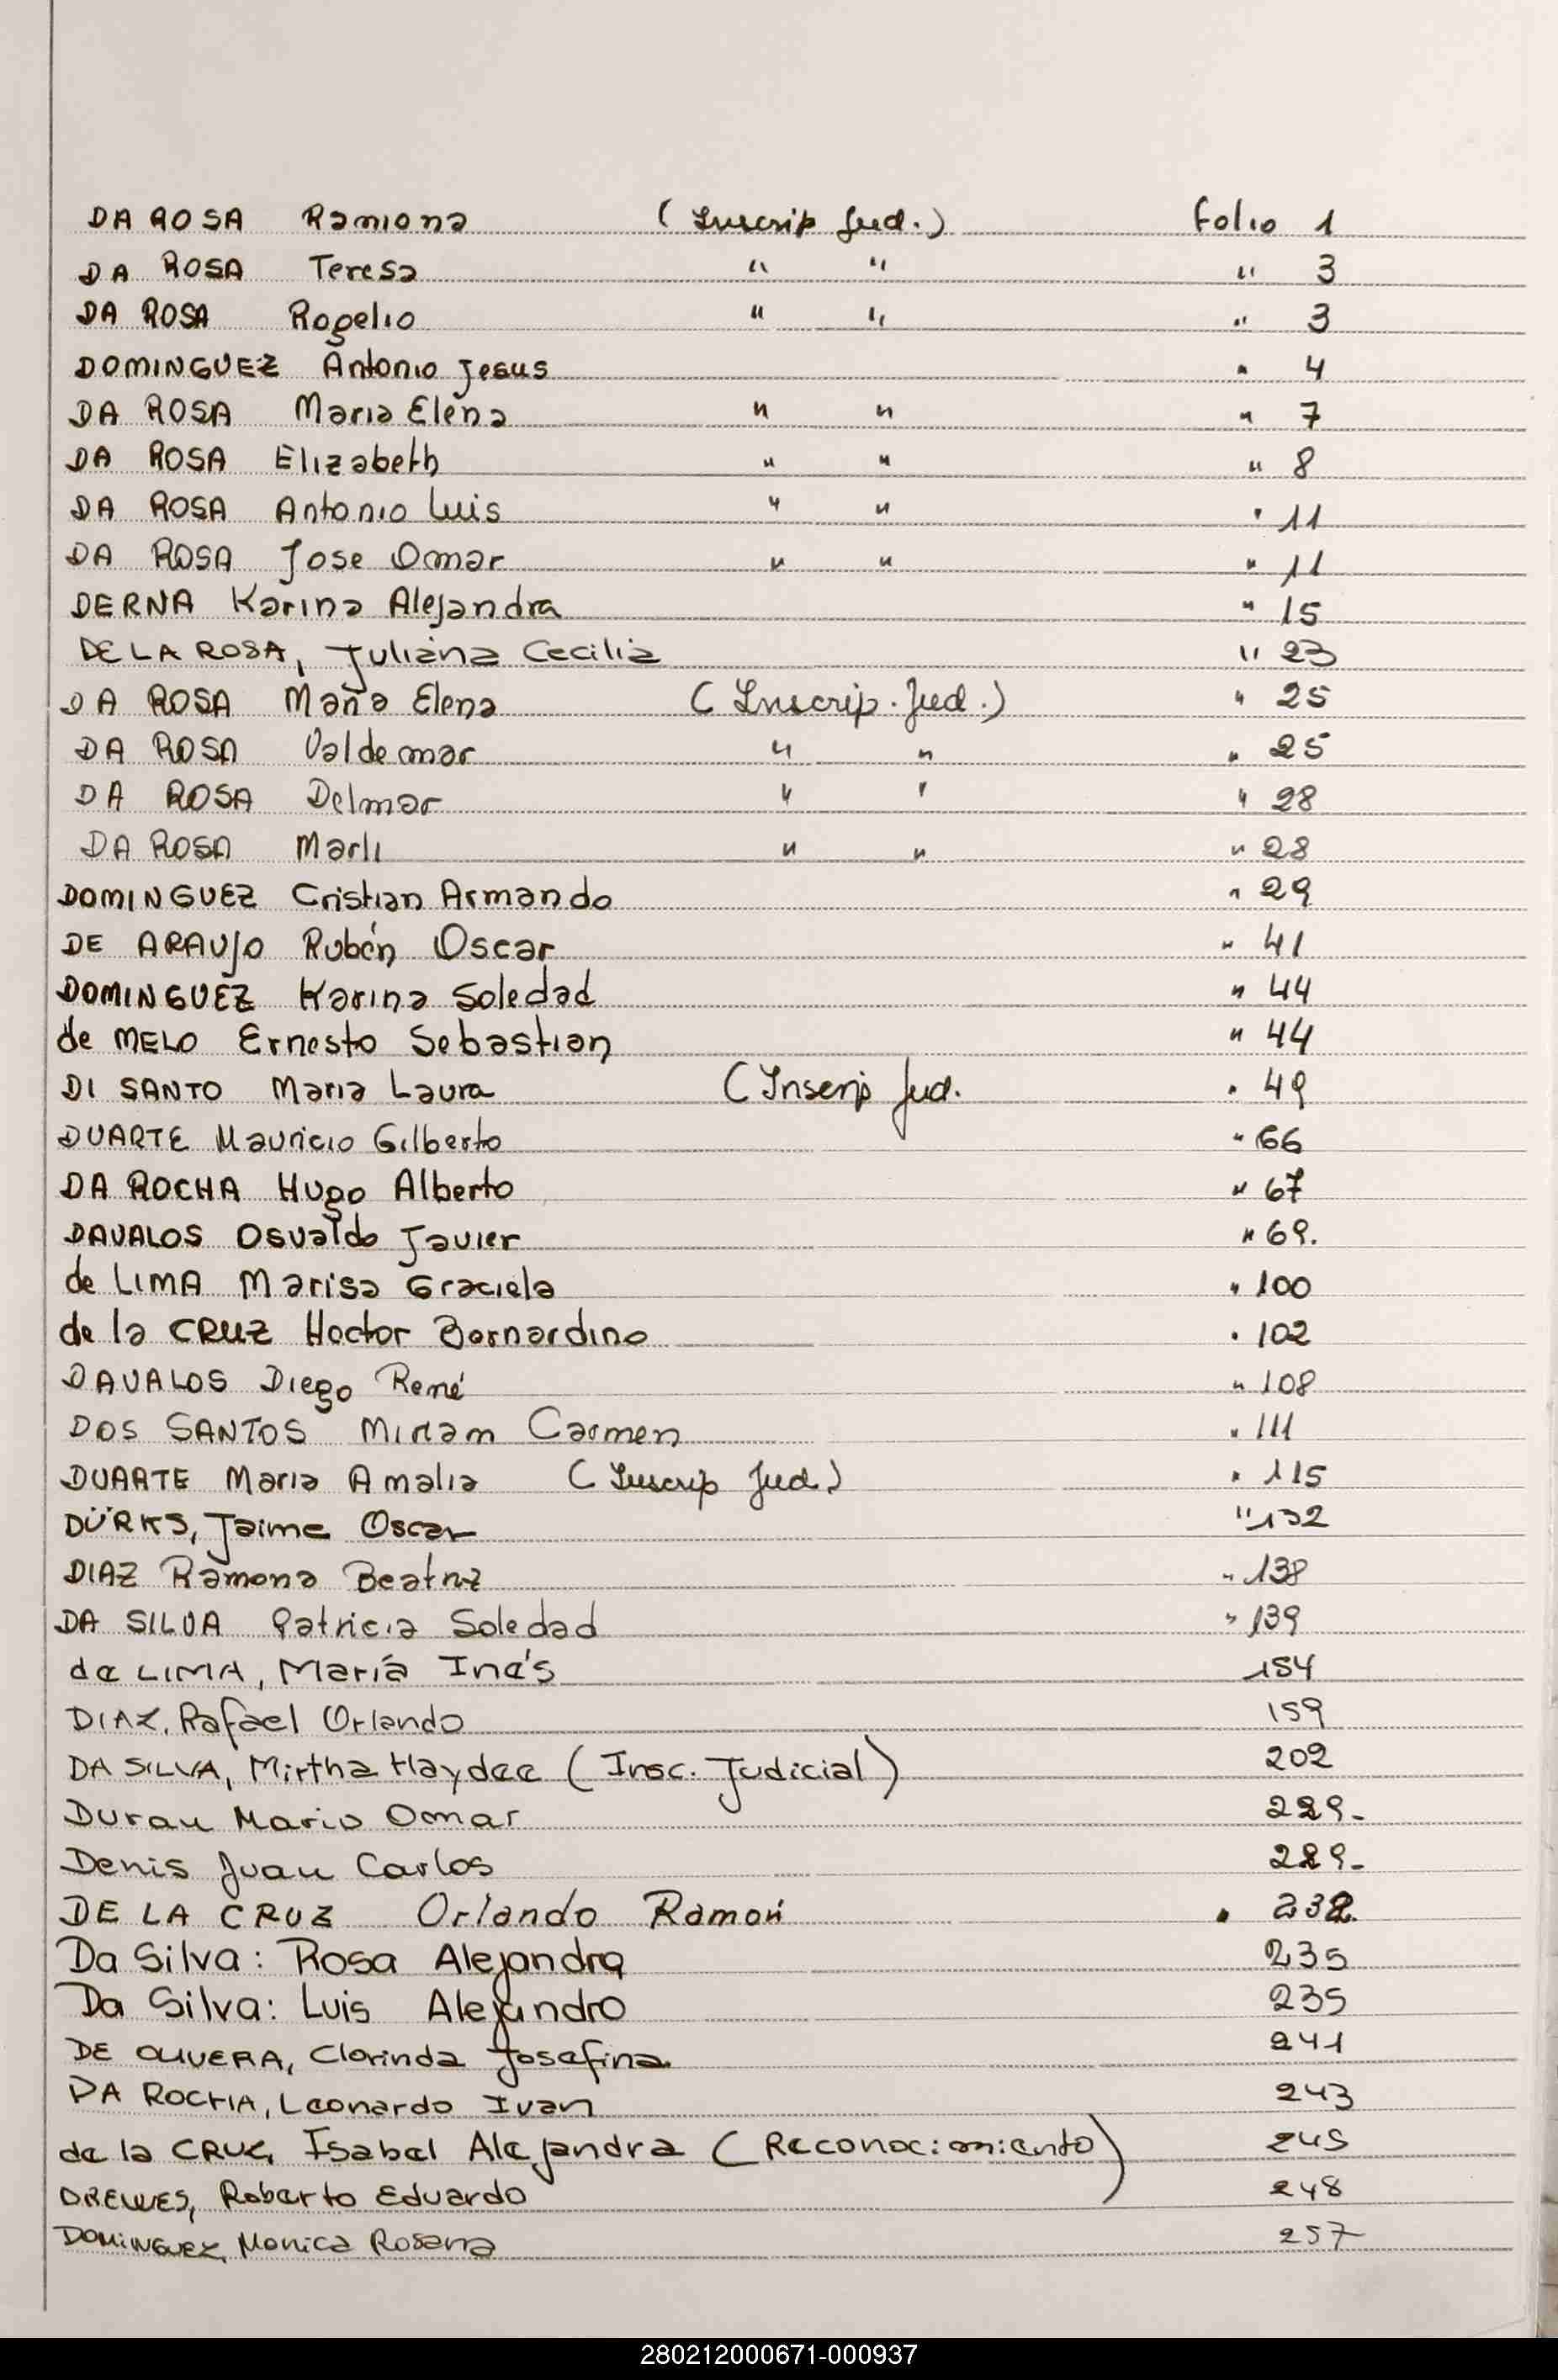 DA ROSA Ramona (Inscrip Jud.) Folio 1
DA ROSA Teresa " " " 3
DA ROSA Rogelio " " " 3
DOMINGUEZ Antonio Jesus " 4
DA ROSA Maria Elena " " " 7
DA ROSA Elizabeth " " " 8
DA ROSA Antonio Luis " " " 11
DA ROSA Jose Omar " " " 11
DERNA Karina Alejandra " 15
DE LA ROSA, Juliana Cecilia " 23
DA ROSA Maria Elena (Inscrip. Jud.) " 25
DA ROSA Valdemar " " " 25
DA ROSA Delmar " " " 28
DA ROSA Marli " " " 28
DOMINGUEZ Cristian Armando " 29
DE ARAUJO Rubén Oscar " 41
DOMINGUEZ Karina Soledad " 44
de MELO Ernesto Sebastian " 44
DI SANTO Maria Laura (Inscrip Jud. " 49
DUARTE Mauricio Gilberto " 66
DA ROCHA Hugo Alberto " 67
DAVALOS Osvaldo Javier " 69.
de LIMA Marisa Graciela " 100
de la CRUZ Hector Bernardino " 102
DAVALOS Diego René " 108
DOS SANTOS Miriam Carmen " 111
DUARTE Maria Amalia (Inscrip Jud.) " 115
DÜRKS, Jaime Oscar " 132
DIAZ Ramona Beatriz " 138
DA SILVA Patricia Soledad " 139
de LIMA, María Inés 154
DIAZ, Rafael Orlando 159
DA SILVA, Mirtha Haydee (Insc. Judicial) 202
Duran Mario Omar 229-
Denis Juan Carlos 229-
DE LA CRUZ Orlando Ramón " 232.
Da Silva: Rosa Alejandra 235
Da Silva: Luis Alejandro 235
DE OLIVERA, Clorinda Josefina 241
DA ROCHA, Leonardo Ivan 243
de la CRUZ, Isabel Alejandra (Reconocimiento) 245
DREWES, Roberto Eduardo 248
DOMINGUEZ, Monica Rosana 257
280212000671-000937